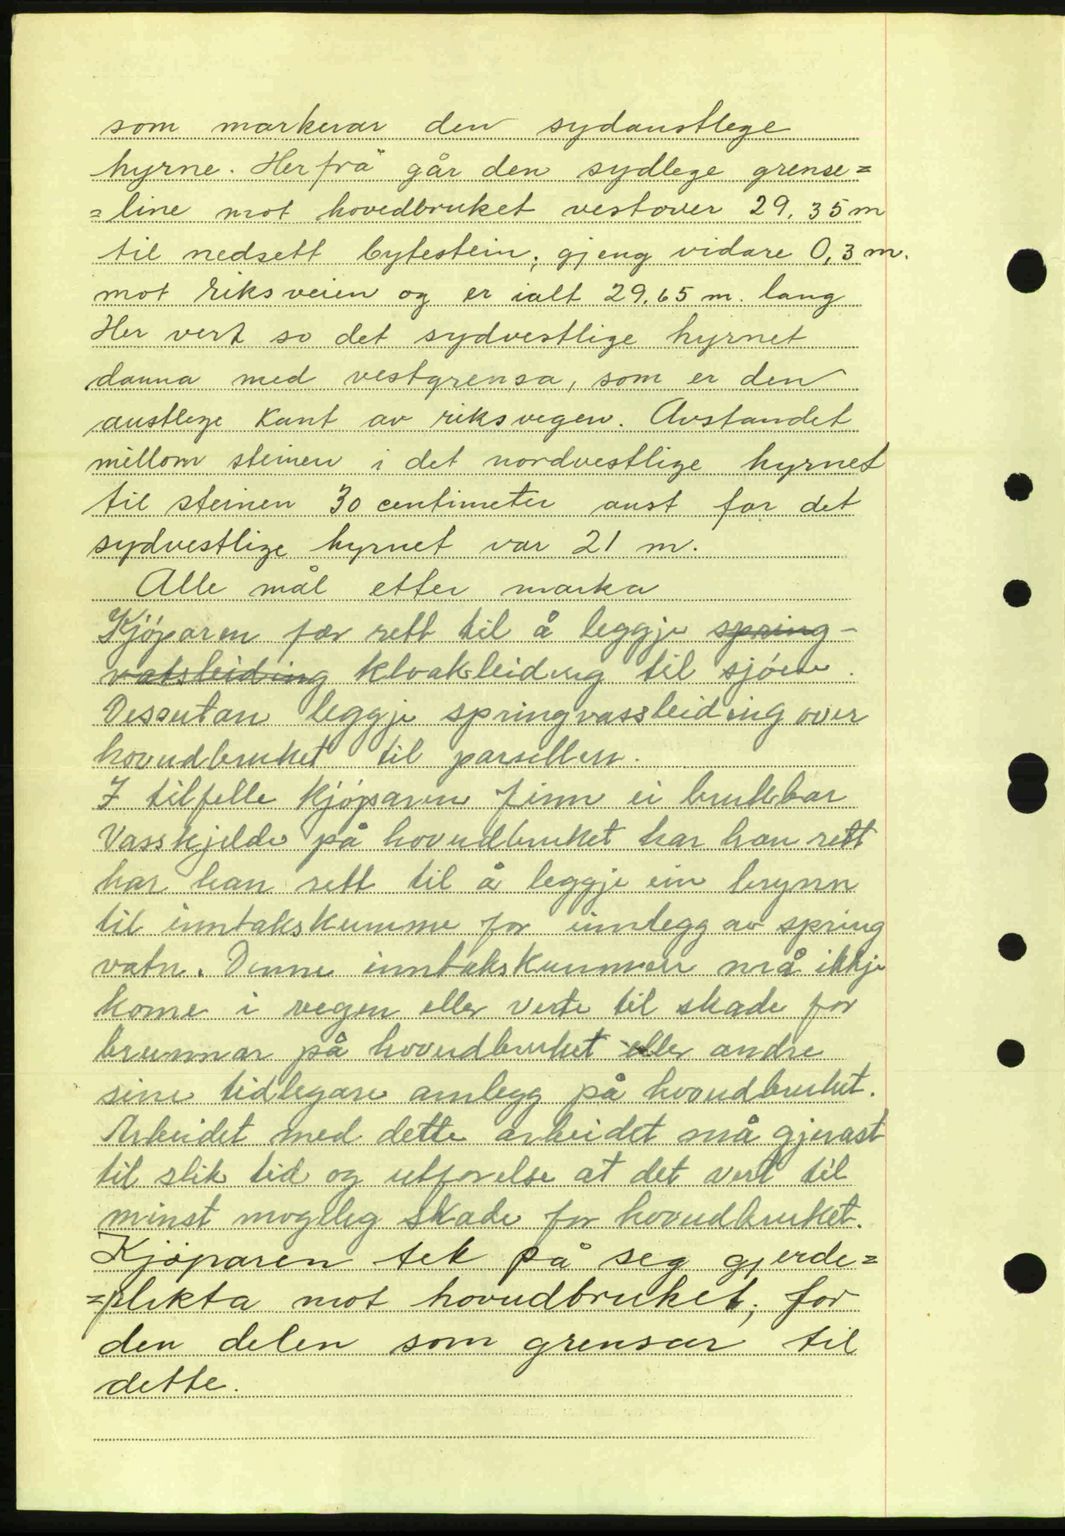 som markerar den sydaustlege
hyrne. Herfrå går den sydlege grense=
=line mot hovedbruket vestover 29,35 m
til nedsett bytestein; gjeng vidare 0,3 m.
mot riksveien og er ialt 29,65 m. lang
Her vert so det sydvestlige hyrnet
danna med vestgrensa, som er den
austlege kant av riksvegen. Avstandet
millom steinen i det nordvestlige hyrnet
til steinen 30 centimeter aust for det
sydvestlige hyrnet var 21 m.
Alle mål etter marka
Kjøparen fær rett til å leggje spring-
vatsleiding kloakleidung til sjøen.
Dessutan leggje springvassleiding over
hovudbruket til parsellen.
I tilfelle kjøparen finn ei brukbar
Vasskjelde på hovudbruket har han rett
har han rett til å leggje ein brynn
til inntakskumme for innlegg av spring
vatn. Denne inntakskummen må ikkje
kome i vegen eller verte til skade for
brunnar på hovudbruket eller andre
sine tidlegare anlegg på hovudbruket.
Arbeidet med dette arbeidet må gjerast
til slik tid og utførelse at det vert til
minst mogeleg skade for hovudbruket.
Kjøparen tek på seg gjerde=
=plikta mot hovudbruket; for
den delen som grensar til
dette.